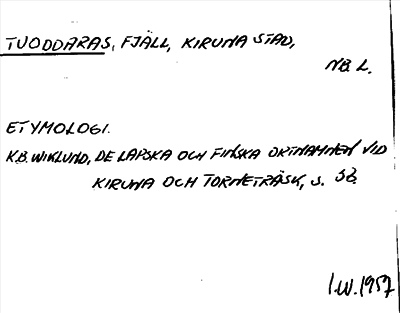 TUODDARAS, FJÄLL, KIRUNA STAD,
NB. L.
ETYMOLOGI.
K.B. WIKLUND, DE LAPSKA OCH FINSKA ORTNAMNEN VID
KIRUNA OCH TORNETRÄSK, S. 38.
I.W. 1957